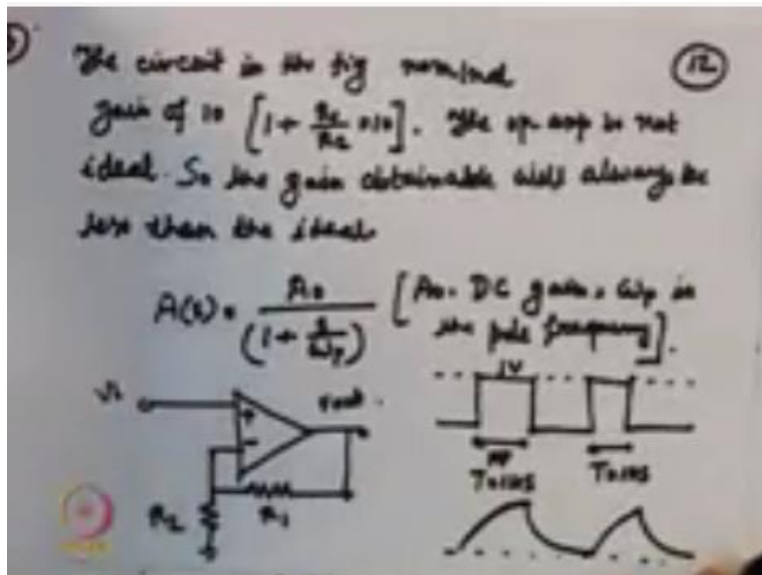 12
The circuit in the fig nominal
gain of 10 [1 + = 10]. The op amp is not
ideal. So the gain obtainable will always be
less than the ideal
A(s) = A0 / (1 + s/ωp) [A0 - DC gain, ωp is
the pole frequency].
Vi
+
-
Vout
R2
R1
1V